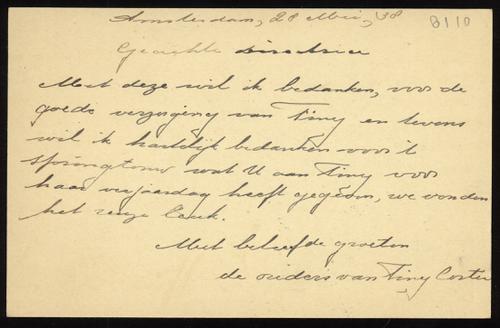 Amsterdam, 28 Mei, '38
B110
Geachte Directrice
Met deze wil ik bedanken, voor de
goede verzorging van Tiny en tevens
wil ik hartelijk bedanken voor 't
springtouw wat U aan Tiny voor
haar verjaardag heeft gegeven, we vonden
het reuze leuk.
Met beleefde groeten
de ouders van Tiny Coster